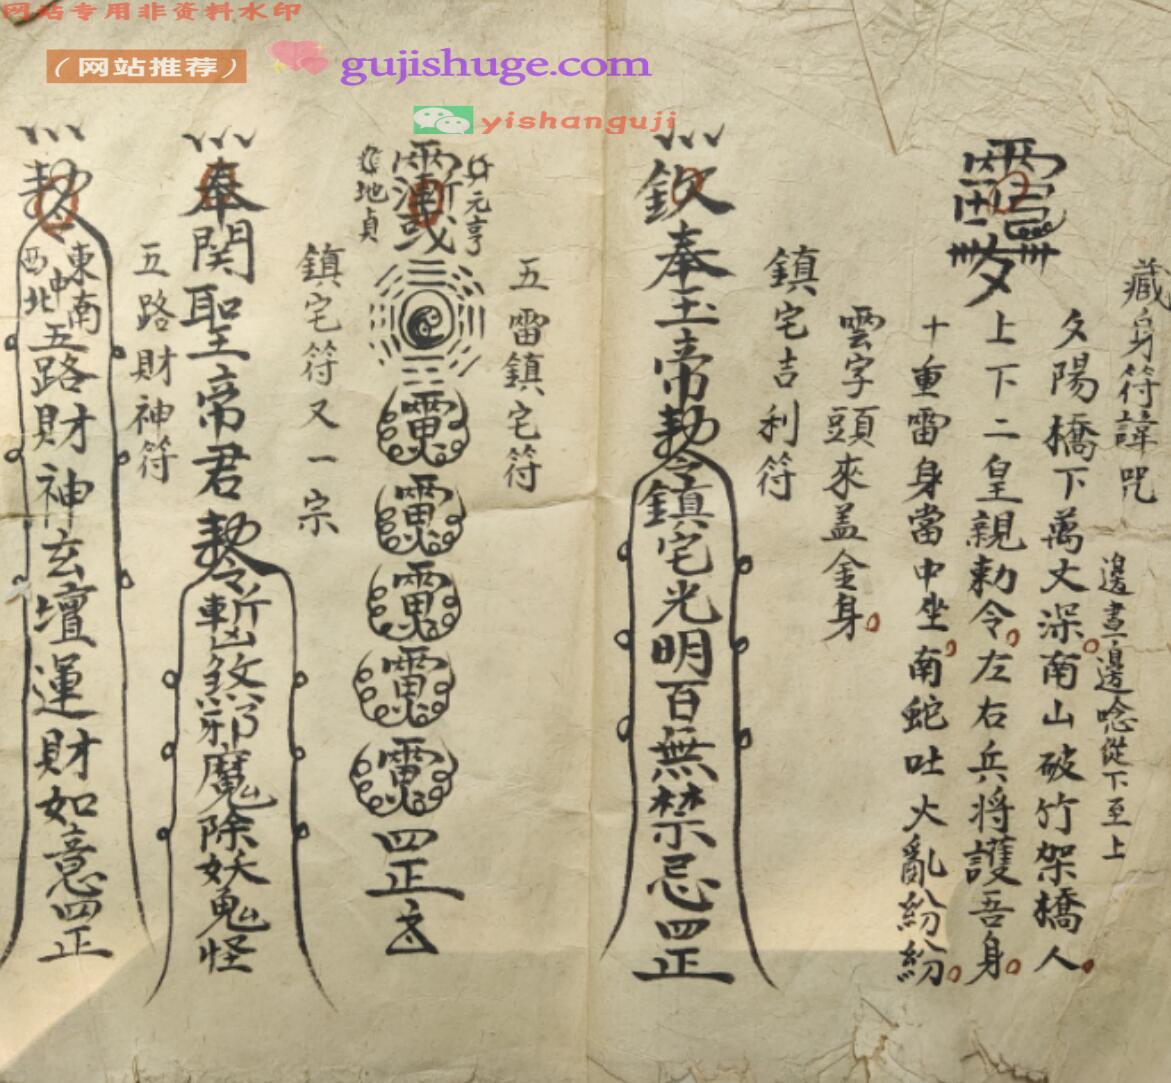 网站专用非资料水印
（网站推荐）
gujishuge.com
yishanguji
藏身符諱咒
邊畫邊唸從下至上
夕陽橋下萬丈深南山破竹架橋人
上下二皇親勅令左右兵將護吾身
十重雷身當中坐南蛇吐火亂紛紛
雲字頭來盖金身
鎮宅吉利符
欽奉玉帝勅令鎮宅光明百無禁忌四正
五雷鎮宅符
元亨
地貞
四正
鎮宅符又一宗
奉関聖帝君勅令斬凶煞邪魔除妖鬼怪
五路財神符
勅令
東南中西北
五路財神玄壇運財如意四正